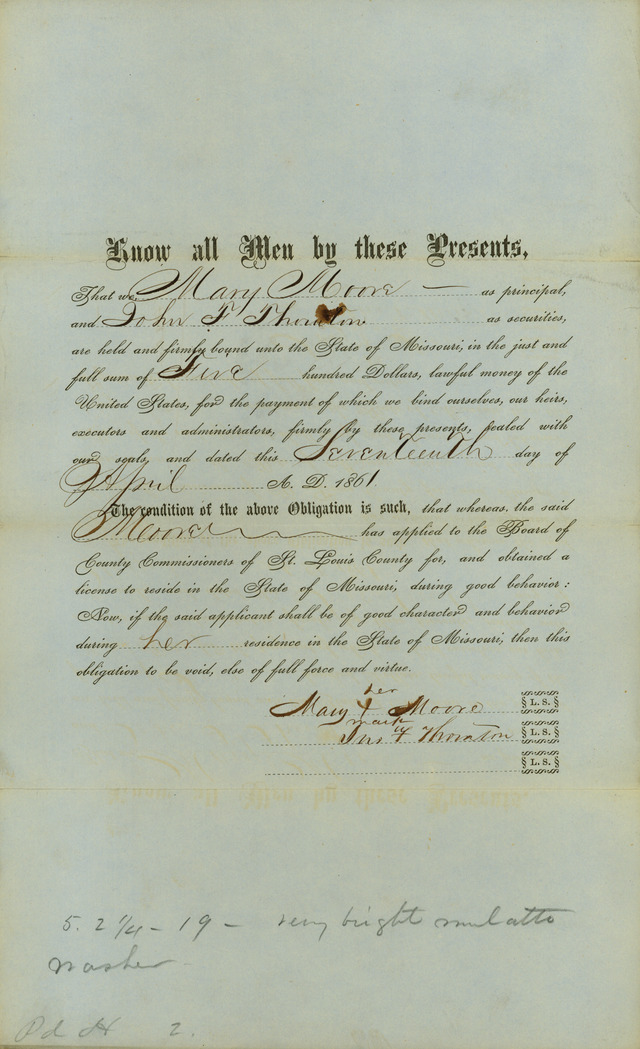 Know all Men by these Presents,
That we Mary Moore — as principal,
and John F Thornton as securities,
are held and firmly bound unto the State of Missouri, in the just and
full sum of Five hundred Dollars, lawful money of the
United States, for the payment of which we bind ourselves, our heirs,
executors and administrators, firmly by these presents, sealed with
our seals, and dated this Seventeenth day of
April A. D. 1861.
The condition of the above Obligation is such, that whereas, the said
Moore has applied to the Board of
County Commissioners of St. Louis County for, and obtained a
license to reside in the State of Missouri, during good behavior:
Now, if the said applicant shall be of good character and behavior
during her residence in the State of Missouri, then this
obligation to be void, else of full force and virtue.
her
Mary X Moore § L. S. §
mark
Jno F Thornton § L. S. §
§ L. S. §
5. 2 1/4 - 19 - very bright mulatto
washer
Pd 2.